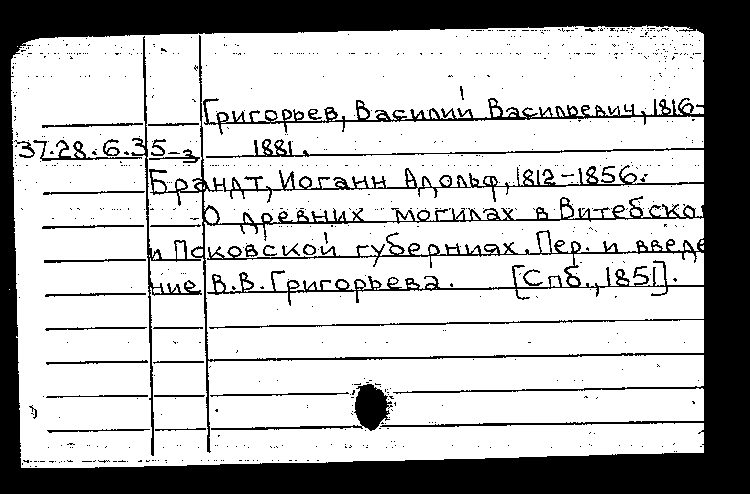 Григорьев, Василий Васильевич, 1816-
37.28.6.35-з 1881.
Брандт, Иоганн Адольф, 1812-1856.
О древних могилах в Витебско
и Псковской губерниях. Пер. и введе
ние В.В. Григорьева. [Спб., 1851].